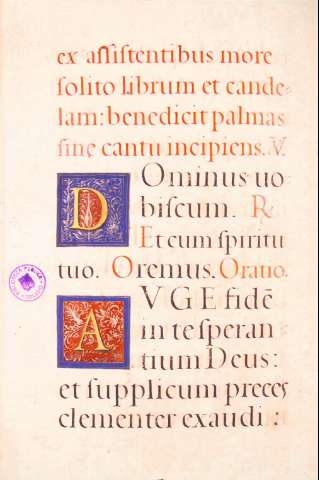 ex aſſiſtentibus more
ſolito librum et cande-
lam: benedicit palmas
ſine cantu incipiens. V.
DOminus uo
biſcum. R.
Et cum ſpiritu
tuo. Oremus. Oratio.
AVGE fidē
in te ſperan
tium Deus:
et ſupplicum preces
clementer exaudi: